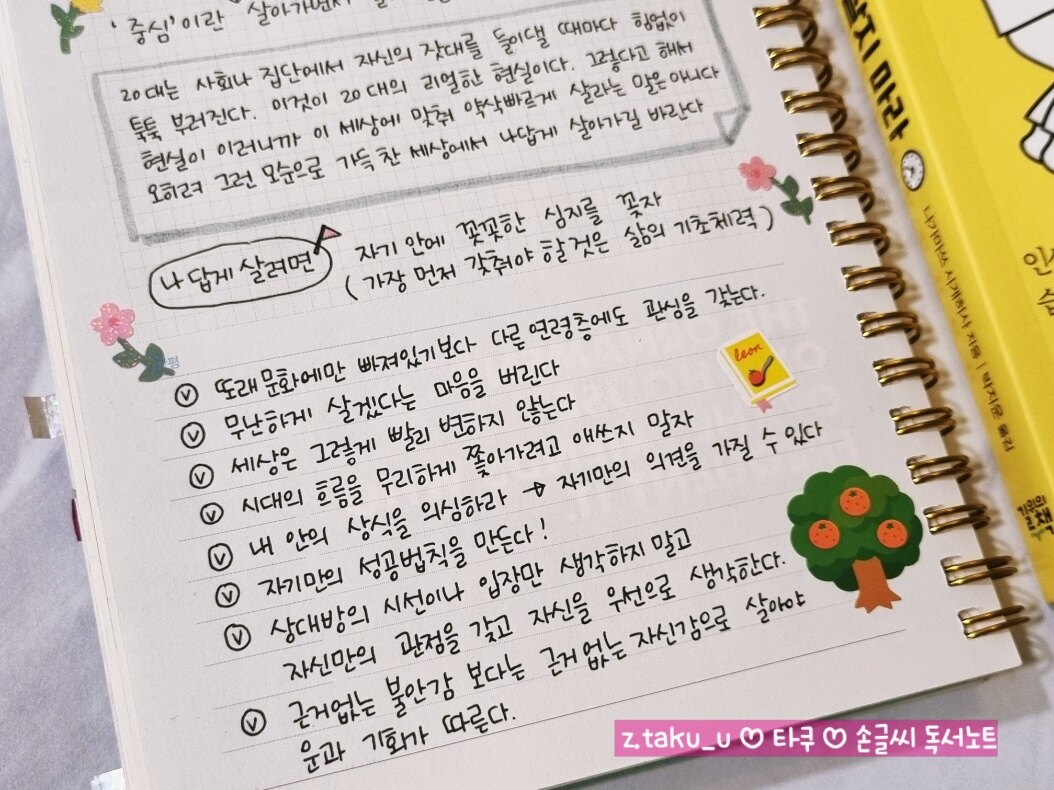 '중심'이란 살아가면서
20대는 사회나 집단에서 자신의 잣대를 들이댈 때마다 힘없이
툭툭 부러진다. 이것이 20대의 리얼한 현실이다. 그렇다고 해서
현실이 이러니까 이 세상에 맞춰 약삭빠르게 살라는 말은 아니다
오히려 그런 모순으로 가득찬 세상에서 나답게 살아가길 바란다
나답게 살려면
자기 안에 꼿꼿한 심지를 꽂자
(가장 먼저 갖춰야 할 것은 삶의 기초체력)
ⓥ 또래문화에만 빠져있기보다 다른 연령층에도 관심을 갖는다.
ⓥ 무난하게 살겠다는 마음을 버린다
ⓥ 세상은 그렇게 빨리 변하지 않는다
ⓥ 시대의 흐름을 무리하게 쫓아가려고 애쓰지 말자
ⓥ 내 안의 상식을 의심하라 → 자기만의 의견을 가질 수 있다
ⓥ 자기만의 성공법칙을 만든다!
ⓥ 상대방의 시선이나 입장만 생각하지말고
자신만의 관점을 갖고 자신을 우선으로 생각한다.
ⓥ 근거없는 불안감 보다는 근거없는 자신감으로 살아야
운과 기회가 따른다.
leon
지 마라
나가마쓰 시게히사 지음 | 박지운 옮김
z.taku_u ♡ 타쿠 ♡ 손글씨 독서노트